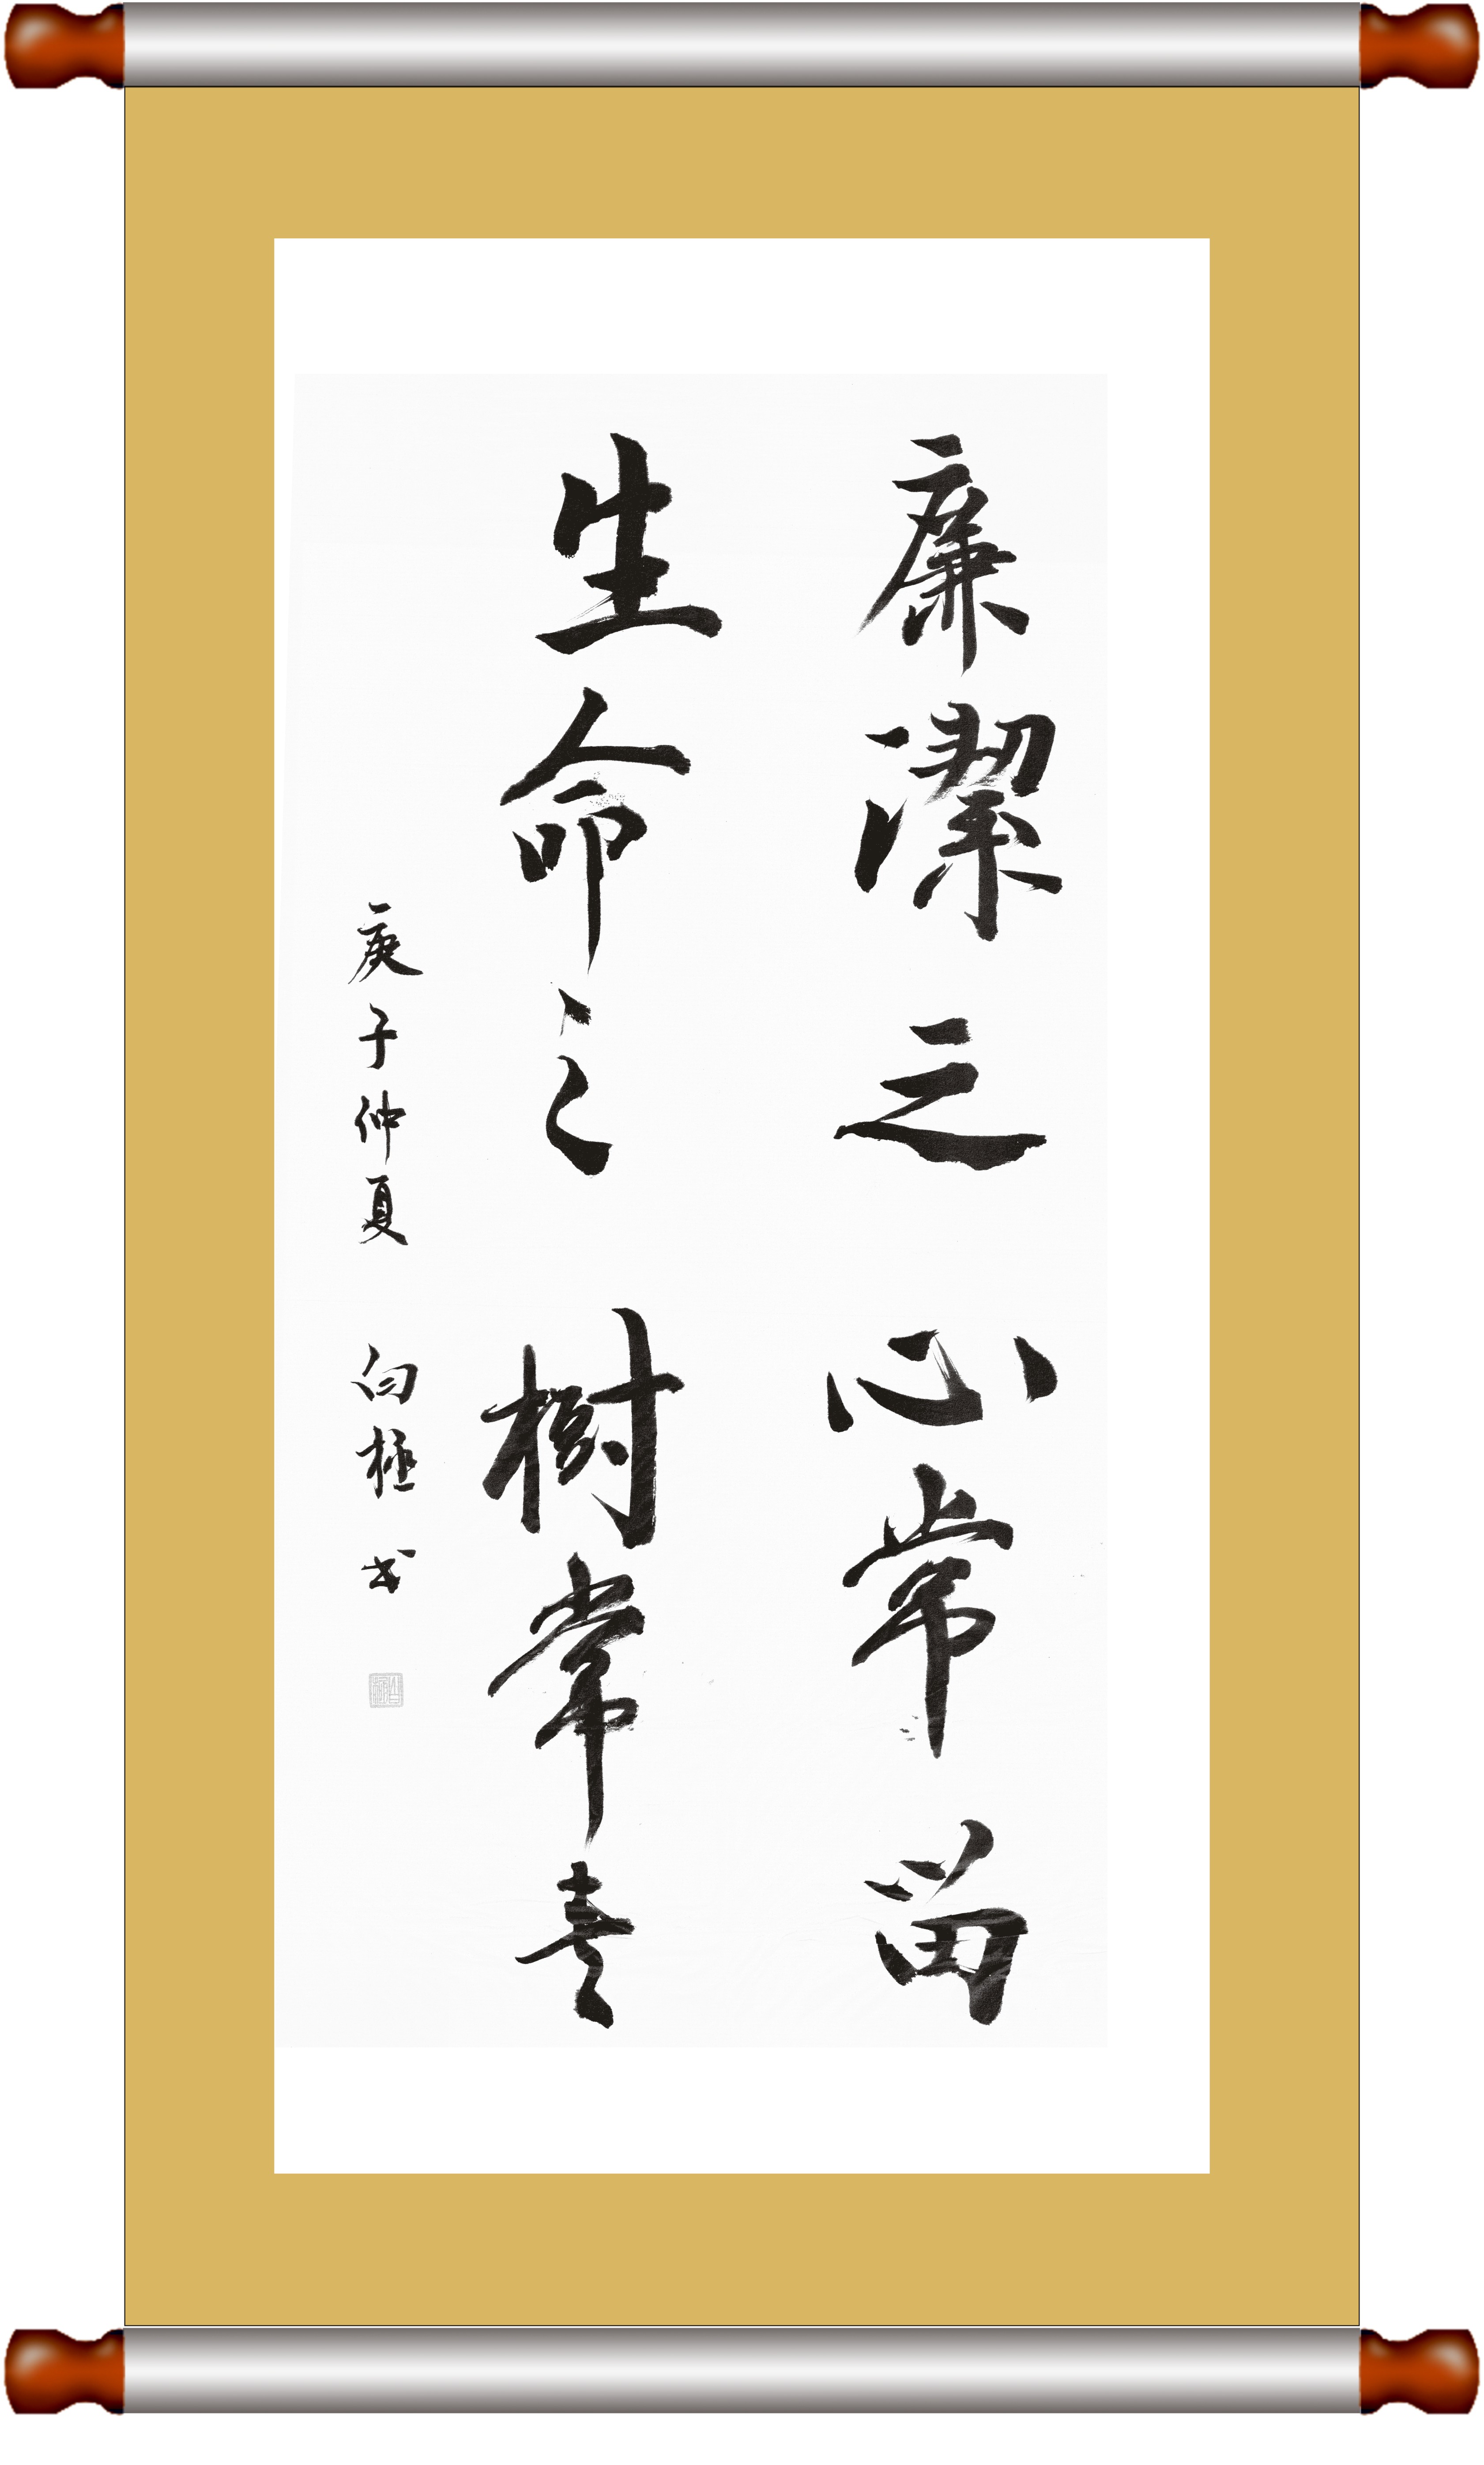 廉潔之心常苗
生命之樹常青
庚子仲夏 白極书